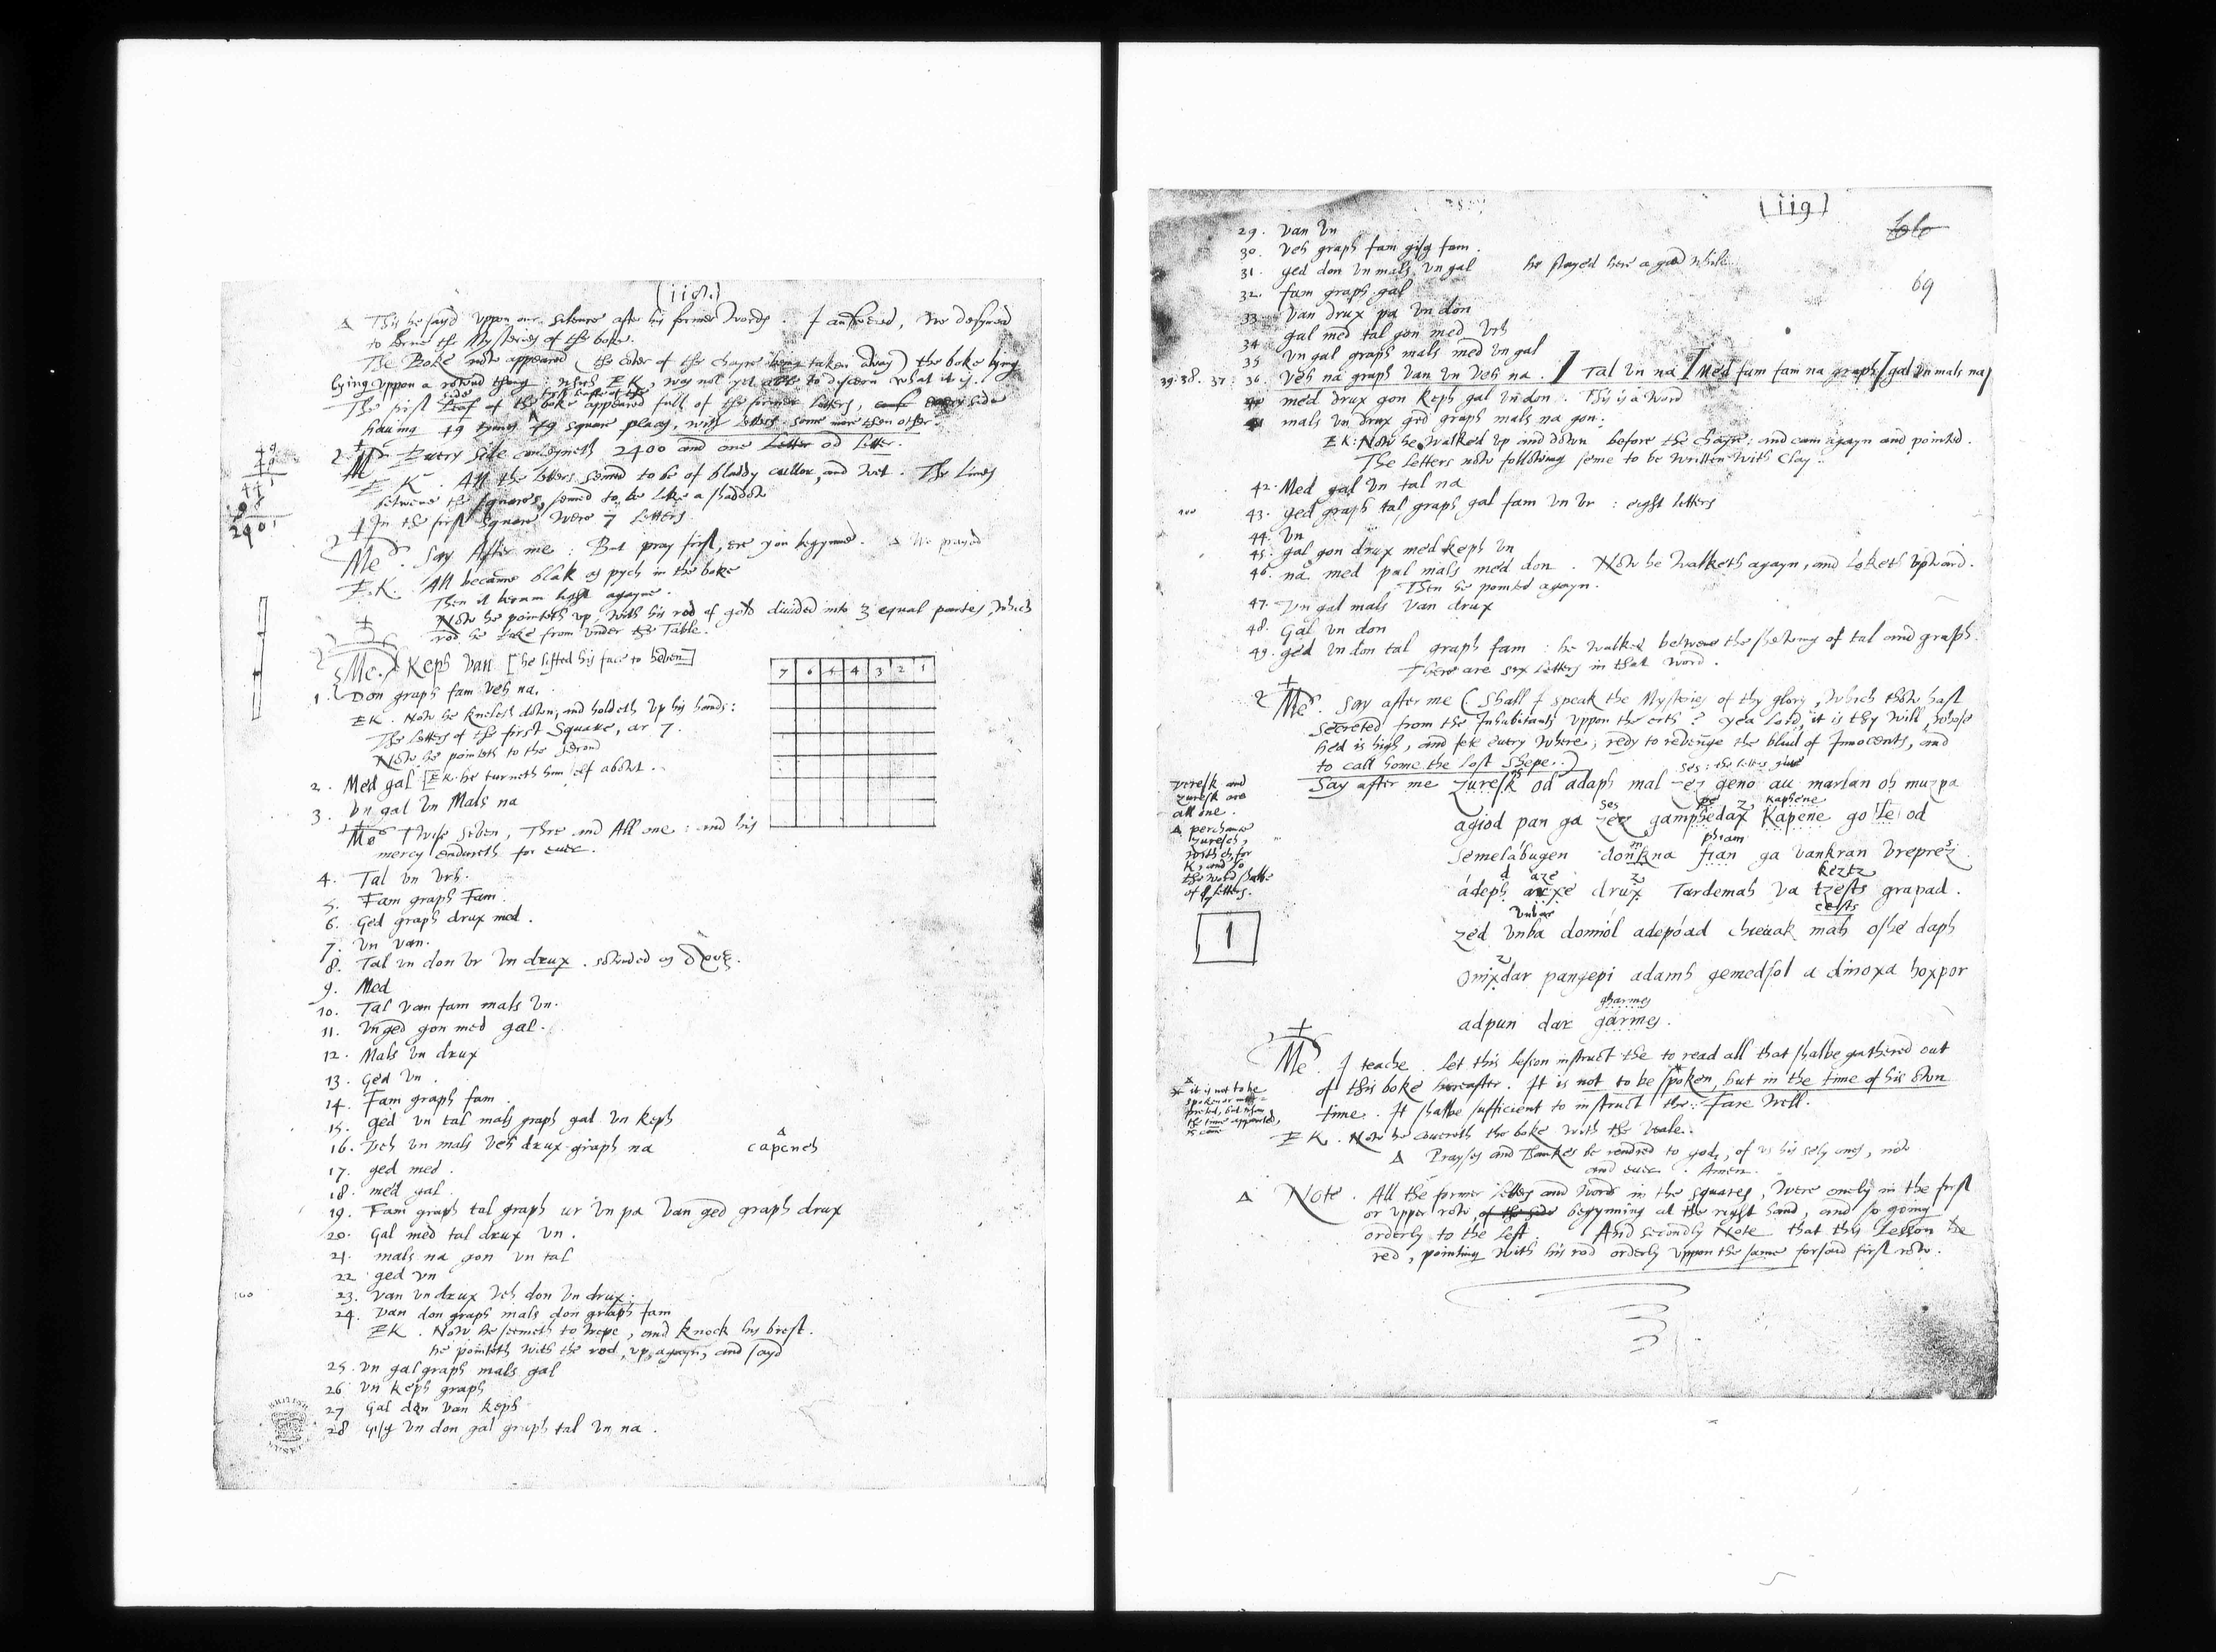 (ii8.)
Δ This he sayd uppon our silence after his former words. I answered, we desyred
to lerne the Mysteries of the boke.
The Boke now appeared (the cover of the chayre being taken away) the boke lying
lying uppon a rownd thing: which E K, was not yet able to discern what it is.
The first Leaf side of the boke appeared full of the former letters, every side
having 49 tymes 49 square places, with letters: some more then other.
Me Every side conteyneth 2400 and one Letter od letter.
E K. All the letters semed to be of bluddy cullor, and wet. The lines
betwene the squares, semed to be like a shaddow
In the first square were 7 letters
49
49
441
2401
Me. Say After me: But pray first, ere you begynne. Δ We prayed
E.K. All became blak as pych in the boke
Then it becam light agayne.
Now he poynteth up, with his rod of gold divided into 3 equal partes, which
rod he toke from under the Table.
Me. Keph van [he lifted his face to heven]
7 6 5 4 3 2 1
1. Don graph fam veh na.
E K. Now he kneleth down, and holdeth up his hands:
The letters of the first Square, ar 7.
Now he pointeth to the second
2. Med gal [E K he turneth him self abowt.
3. Un gal un Mals na
Me Twise seven, Thre and All one: and his
mercy endureth for ever.
4. Tal un urh.
5. Fam graph Fam.
6. Ged graph drux med.
7. Un van.
8. Tal un don ur un drux. sownded as
9. Med
10. Tal van fam mals un.
11. Un ged gon med gal.
12. Mals un drux
13. Ged un.
14. Fam graph fam.
15. ged un tal mals graph gal un keph
16. veh un mals veh drux graph na Δ capeneh
17. ged med.
18. med gal.
19. Fam graph tal graph ur un pa van ged graph drux
20. Gal med tal drux un.
21. mals na gon un tal
22. ged un
100
23. van un drux veh don un drux.
24. van don graph mals don graph fam
E K. Now he semeth to wepe, and knock his brest.
he pointeth with the rod, up agayn, and sayd
25. un gal graph mals gal
26. un keph graph
27. Gal don van keph
28. gisg un don gal graph tal un na.
BRITISH
MUSEUM
(ii9)
69
29. van un
30. veh graph fam gisg fam.
31. ged don un mals un gal he stayed here a good while
32. fam graph gal
33. van drux pa un don
34. gal med tal gon med urh
35. un gal graph mals med un gal
39. 38. 37. 36. veh na graph van un veh na. / Tal un na / Med fam fam na graph / gal un mals na /
med drux gon keph gal un don. This is a word
mals un drux ged graph mals na gon.
E K: Now he walked up and down before the chayre: and cam agayn and pointed.
The Letters now following seme to be written with Clay.
42. Med gal un tal na
100
43. ged graph tal graph gal fam un ur: eight letters
44. un
45. gal gon drux med keph un
46. na med pal mals med don. Now he walketh agayn, and loketh upward.
Then he pointed agayn.
47. Un gal mals van drux
48. Gal un don
49. ged un don tal graph fam: he walked betwene the shewing of tal and graph.
There are six letters in that word.
Me. Say after me (Shall I speak the Mysteries of thy glory, which thow hast
secreted from the Inhabitants uppon the erth? yea lord, it is thy will, whose
hed is high, and fete every where, redy to revenge the blud of Innocents, and
to call home the lost shepe.)
Say after me zuresk od adaph mal zez geno au marlan oh muzpa
agiod pan ga zez gamphedax Kapene go te od
semelabugen donkna fian ga vankran vreprez
adeph axe drux Tardemah va tzests grapad.
zed unba domiol adepoad chieuak mah oshe daph
onixdar pangepi adamh gemedsol a dinoxa hoxpor
adpun dar garmes.
gharmes
zuresk and
zuresk are
all one.
Δ perchance
zuresch,
with ch for
k, and so
the word shalbe
of 7 letters.
1
Me. I teache. Let this lesson instruct the to read all that shalbe gathered out
of this boke hereafter. It is not to be spoken, but in the time of his own
time. It shalbe sufficient to instruct the: Fare Well.
it is not to be
spoken or
preted, but when
the time appointed,
is come
E K. Now he covereth the boke with the veale.
Δ Prayses and Thankes be rendred to god, of us his sely ones, now
and ever. Amen.
Δ Note. All the former letters and words in the squares, were onely in the first
or upper row of the side begynning at the right hand, and so going
orderly to the left. And secondly Note that this Lesson he
red, pointing with his rod orderly uppon the same forsaid first row.